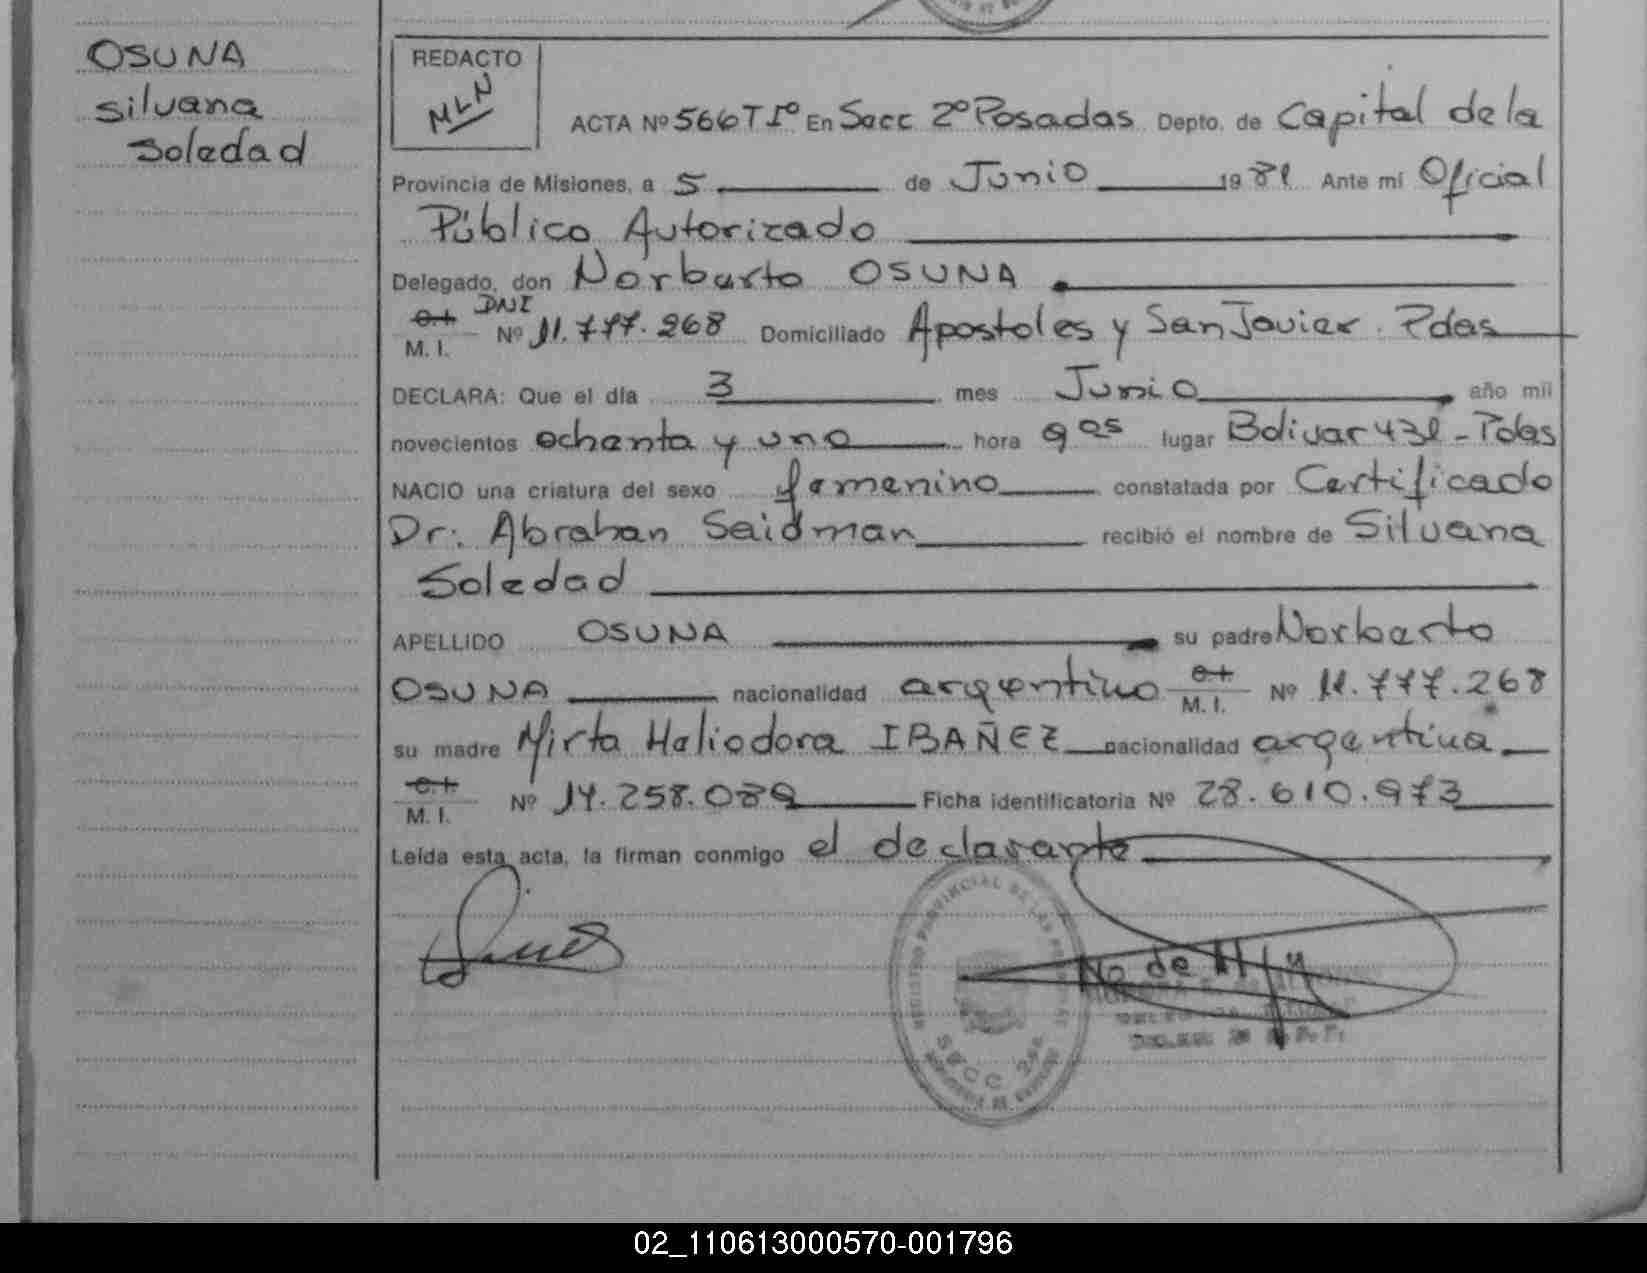 OSUNA
Silvana
Soledad
REDACTO
MLN
ACTA Nº 566 T Iº En Secc 2º Posadas Depto. de Capital de la
Provincia de Misiones, a 5 de Junio 1981 Ante mi Oficial
Público Autorizado
Delegado, don Norberto OSUNA
DNI
C.I.
M. I. Nº 11.777.268 Domiciliado Apostoles y San Javier. Pdas
DECLARA: Que el día 3 mes Junio año mil
novecientos ochenta y uno hora 9 as lugar Bolivar 431 - Pdas
NACIO una criatura del sexo femenino constatada por Certificado
Dr: Abrahan Seidman recibió el nombre de Silvana
Soledad
APELLIDO OSUNA su padre Norberto
OSUNA nacionalidad argentino C.I. M. I. Nº 11.777.268
su madre Mirta Heliodora IBAÑEZ nacionalidad argentina
C.I. M. I. Nº 14.258.089 Ficha identificatoria Nº 28.610.973
Leída esta acta, la firman conmigo el declarante
REGISTRO PROVINCIAL DE LAS PERSONAS
SECC 2da
02_110613000570-001796